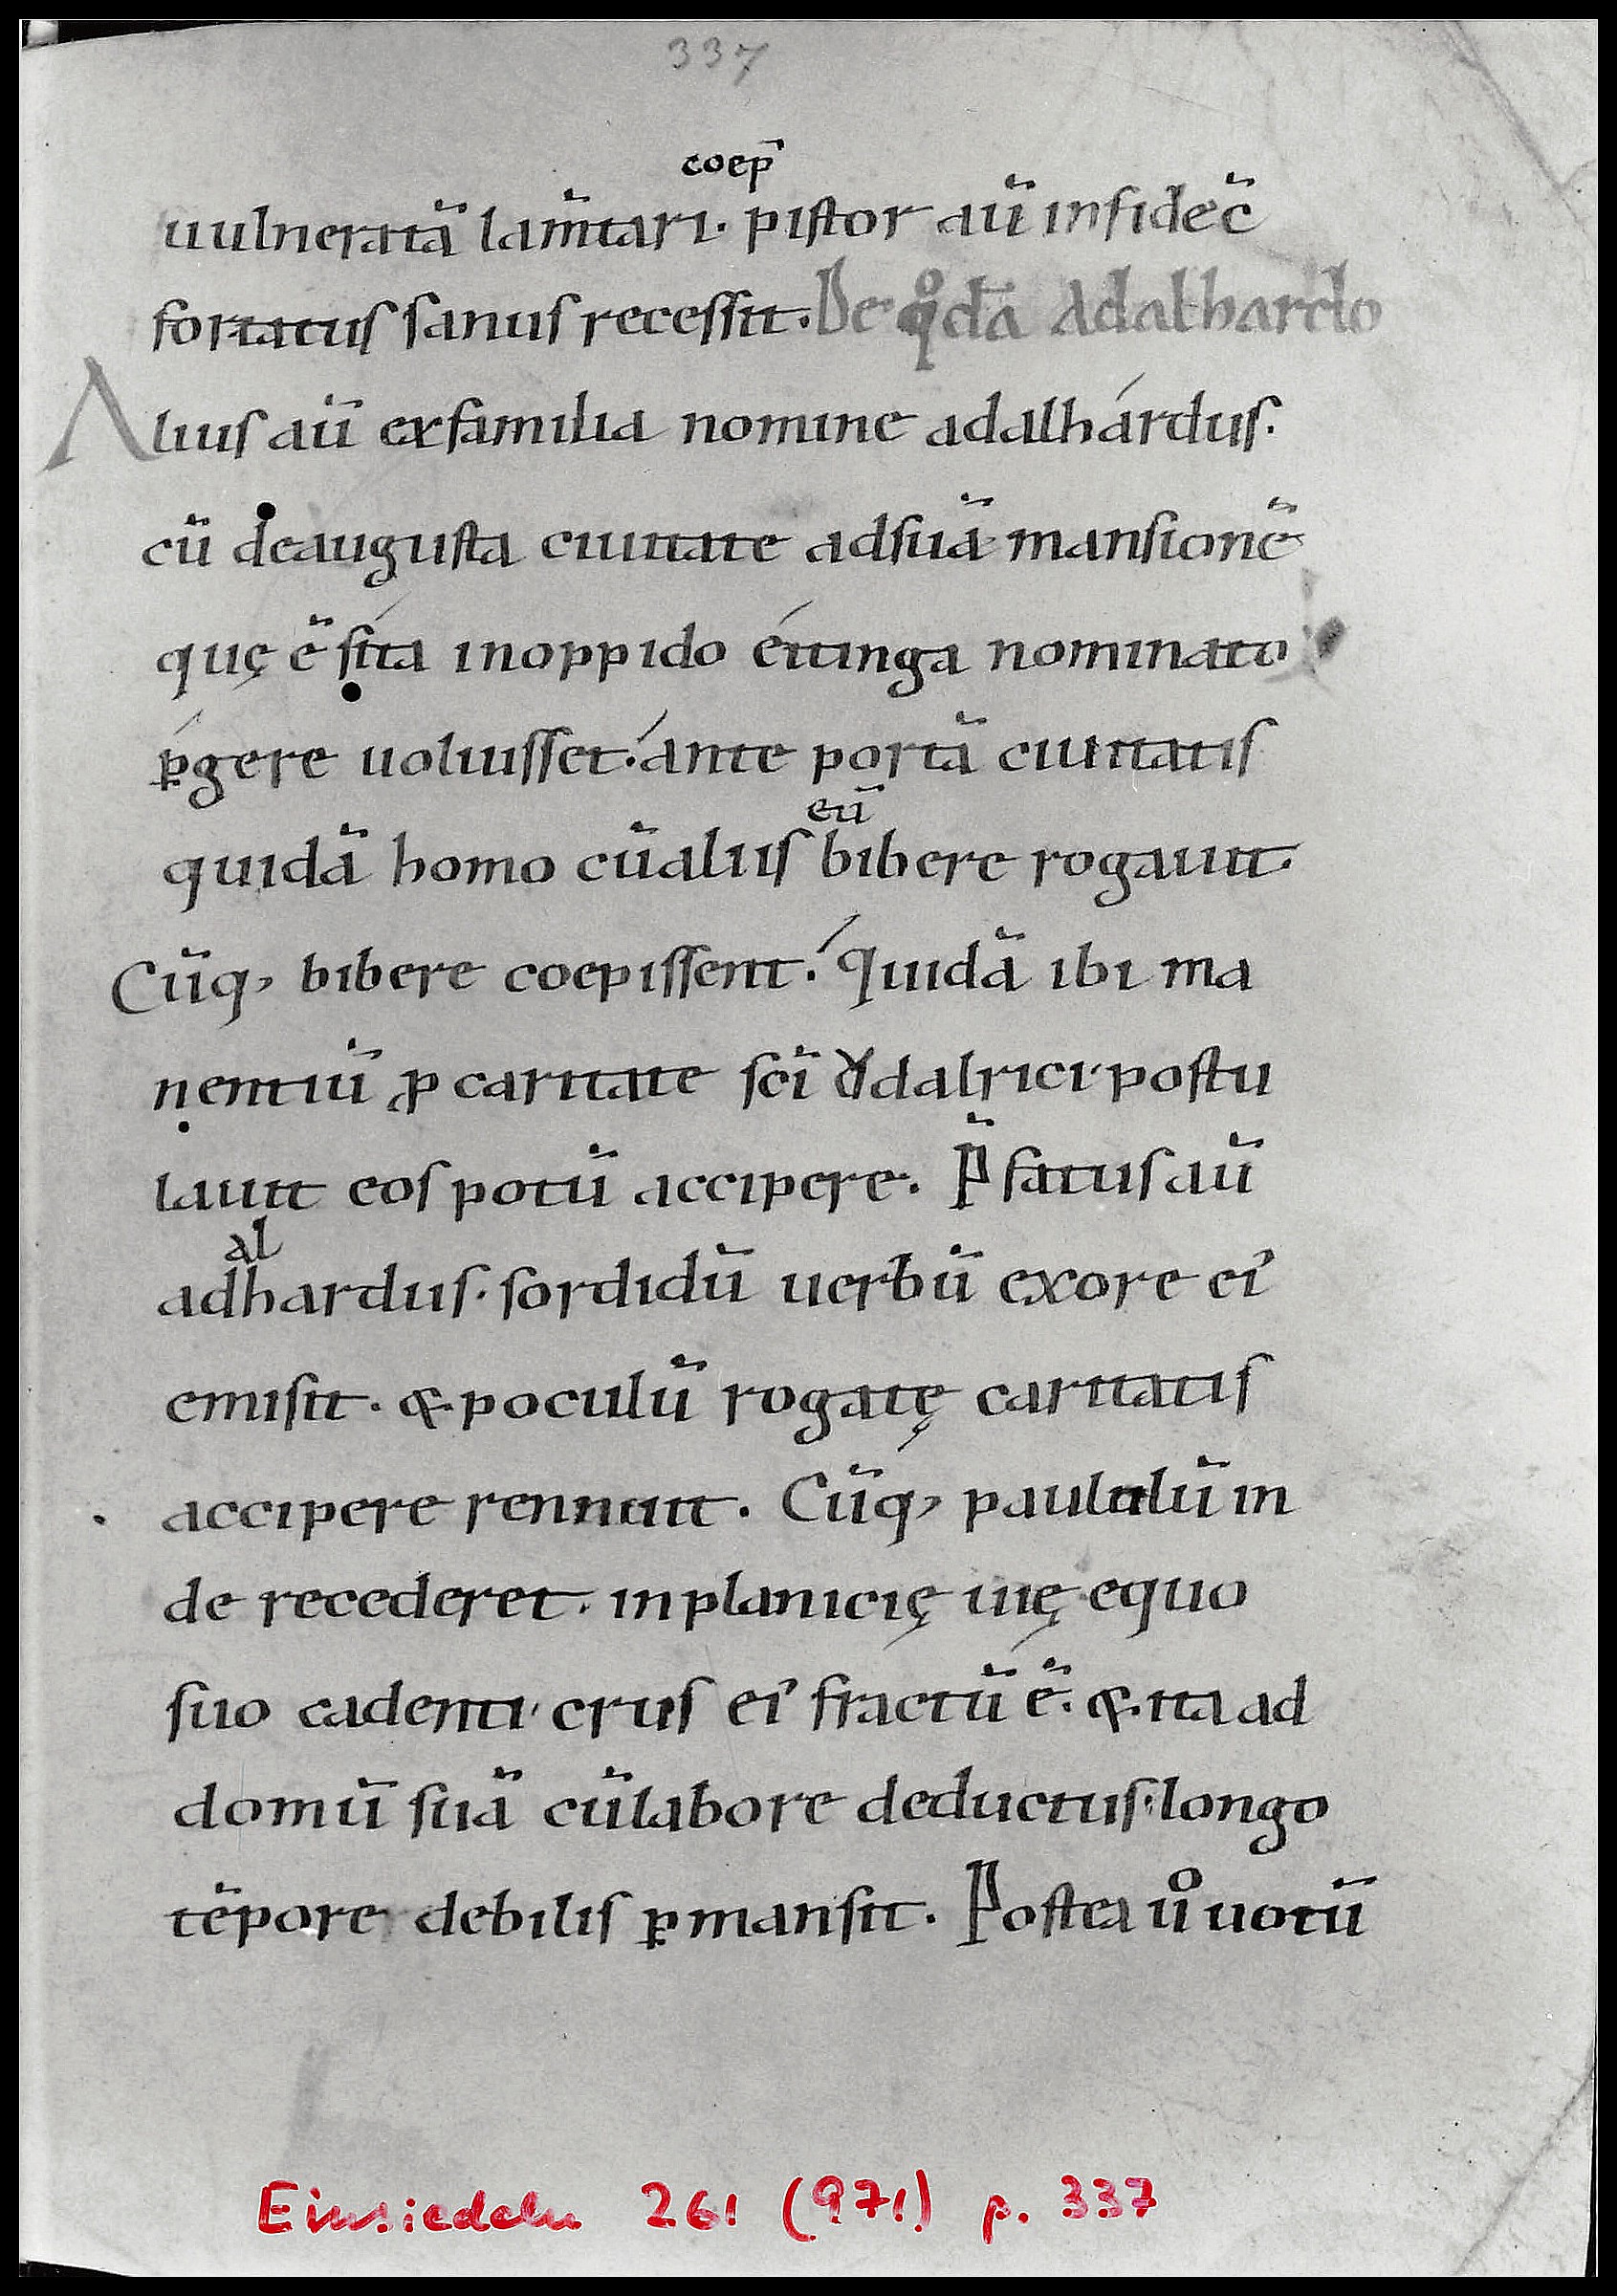 337
coep̄
uulneratā lam̄tari. pistor aū in fide c̄
fortatus sanus recessit. De qͦdā Adalhardo
Alius aū ex familia nomine adalhárdus.
cū de augusta ciuitate ad suā mansionē
quę ē síta in oppido éitinga nominato
ꝑgere uoluisset. ante portā ciuitatis
eū
quidā homo cū aliis bibere rogauit.
Cūq, bibere coepissent. Quidā ibi ma
nentiū ꝓ caritate sc̄i Ȣdalrici. postu
lauit eos potū accipere. P̄fatus aū
al
adhardus. sordidū uerbū ex ore ei᾽
emisit. & poculū rogatę caritatis
accipere rennuit. Cūq, paululū in
de recederet. in planicię uię equo
suo cadenti. crus ei᾽ fractū ē. & ita ad
domū suā cū labore deductus. longo
tēpore debilis ꝑmansit. Postea uͦ uotū
Einsiedeln 261 (971) p. 337